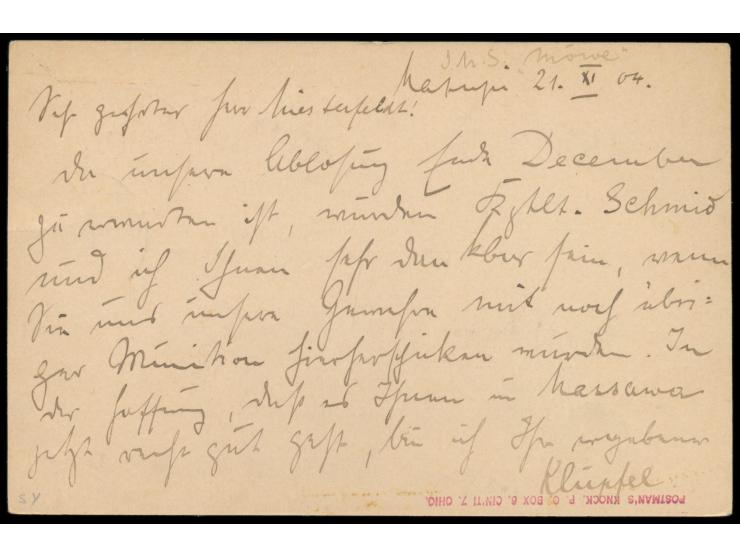 S.M.S. "Möwe"
Matupi 21. XI 04.
Sehr geehrter Herr Miesterfeldt!
Da unsere Ablösung Ende December
zu erwarten ist, würden Kptlt. Schmid
und ich Ihnen sehr dankbar sein, wenn
Sie uns unsere Gewehre mit noch übri=
ger Munition hierherschicken würden. In
der Hoffnung, daß es Ihnen in Massawa
jetzt recht gut geht, bin ich Ihr ergebener
Klüpfel.
POSTMAN'S KNOCK, P. O. BOX 6, CIN'TI 7, OHIO.
SY